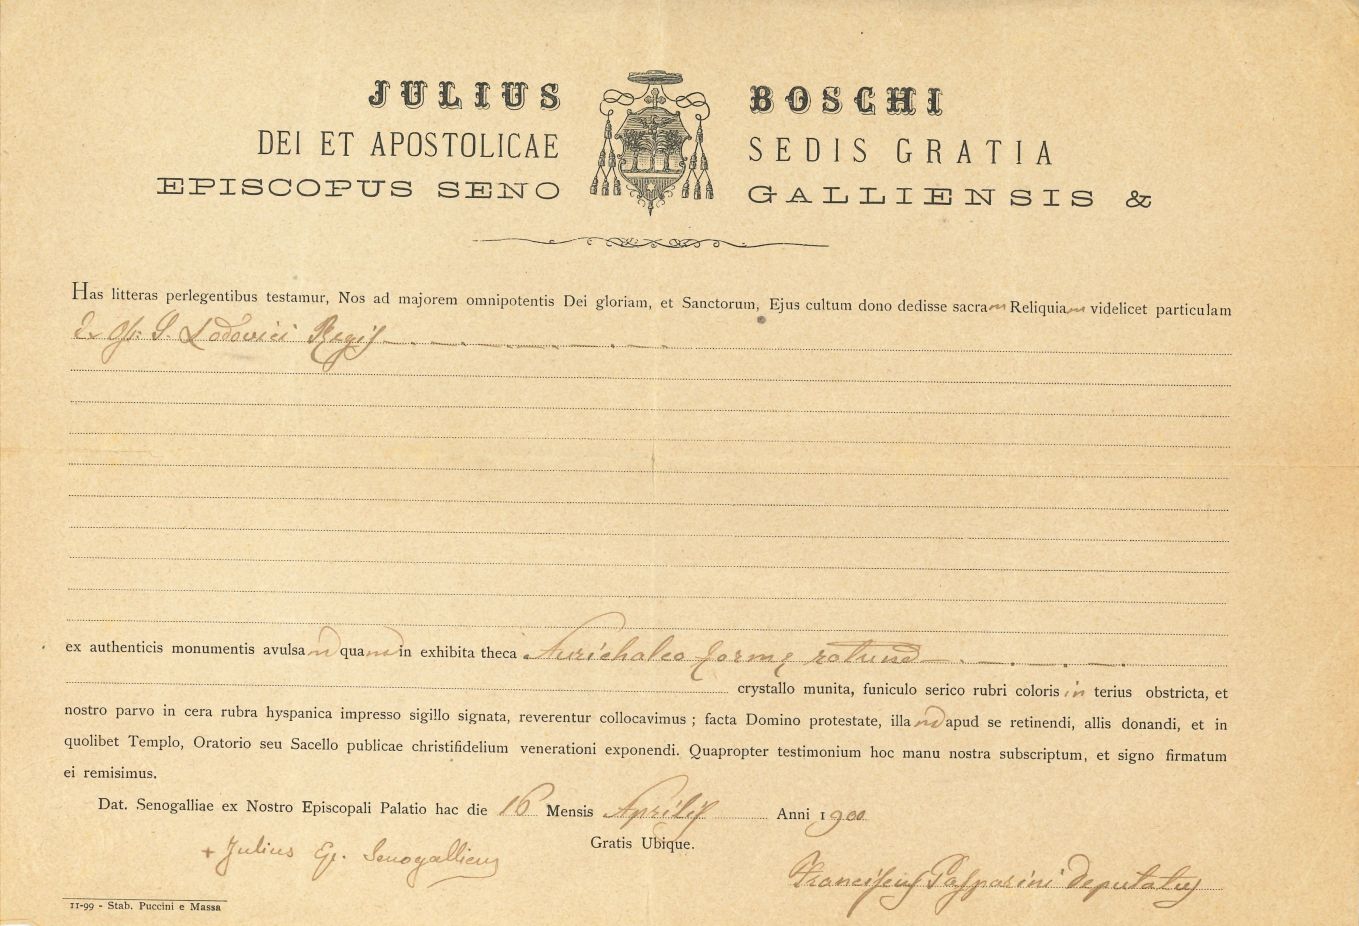 JULIUS BOSCHI
DEI ET APOSTOLICAE SEDIS GRATIA
EPISCOPUS SENO GALLIENSIS &
Has litteras perlegentibus testamur, Nos ad majorem omnipotentis Dei gloriam, et Sanctorum, Ejus cultum dono dedisse sacram Reliquiam videlicet particulam
Ex Oss. S. Lodovici Regis
ex authenticis monumentis avulsam quam in exhibita theca Aurichalco forme rotund
crystallo munita, funiculo serico rubri coloris in terius obstricta, et
nostro parvo in cera rubra hyspanica impresso sigillo signata, reverentur collocavimus ; facta Domino protestate, illam apud se retinendi, allis donandi, et in
quolibet Templo, Oratorio seu Sacello publicae christifidelium venerationi exponendi. Quapropter testimonium hoc manu nostra subscriptum, et signo firmatum
ei remisimus.
Dat. Senogalliae ex Nostro Episcopali Palatio hac die 16 Mensis Aprilis Anni 1900
Gratis Ubique.
+ Julius Ep. Senogallien
Franciscus Gasparini deputatus
11-99 - Stab. Puccini e Massa